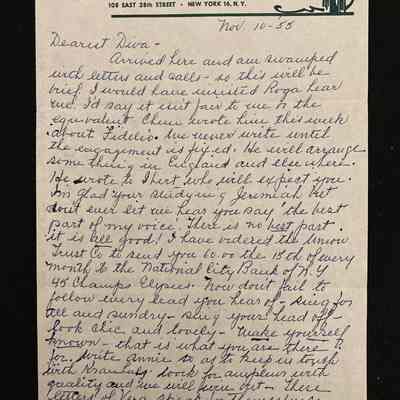 108 EAST 38th STREET • NEW YORK 16, N.Y.
Nov. 10-55
Dearest Diva -
Arrived here and am swamped
with letters and calls - so this will be
brief. I would have insisted Roga hear
me. I'd say it isn't fair to me or the
equivalent. Chum wrote him this week
about Fidelio. We never write until
the engagement is fixed. He will arrange
something in England and elsewhere.
He wrote to Ihert who will expect you.
I'm glad your studying Jeremiah but
don't ever let me hear you say the best
part of my voice. There is no best part
it is all good! I have ordered the Union
Trust Co to send you 60.00 the 15th of every
month to the National City Bank of N.Y
45 Champs Elysees. Now don't fail to
follow every lead you hear of - sing for
all and sundry - sing your head off -
look chic and lovely - make yourself
known - that is what you are there
for. Write Annie so as to keep in touch
with Krausnss look for anyplus with
quality and we will win out - These
letters of